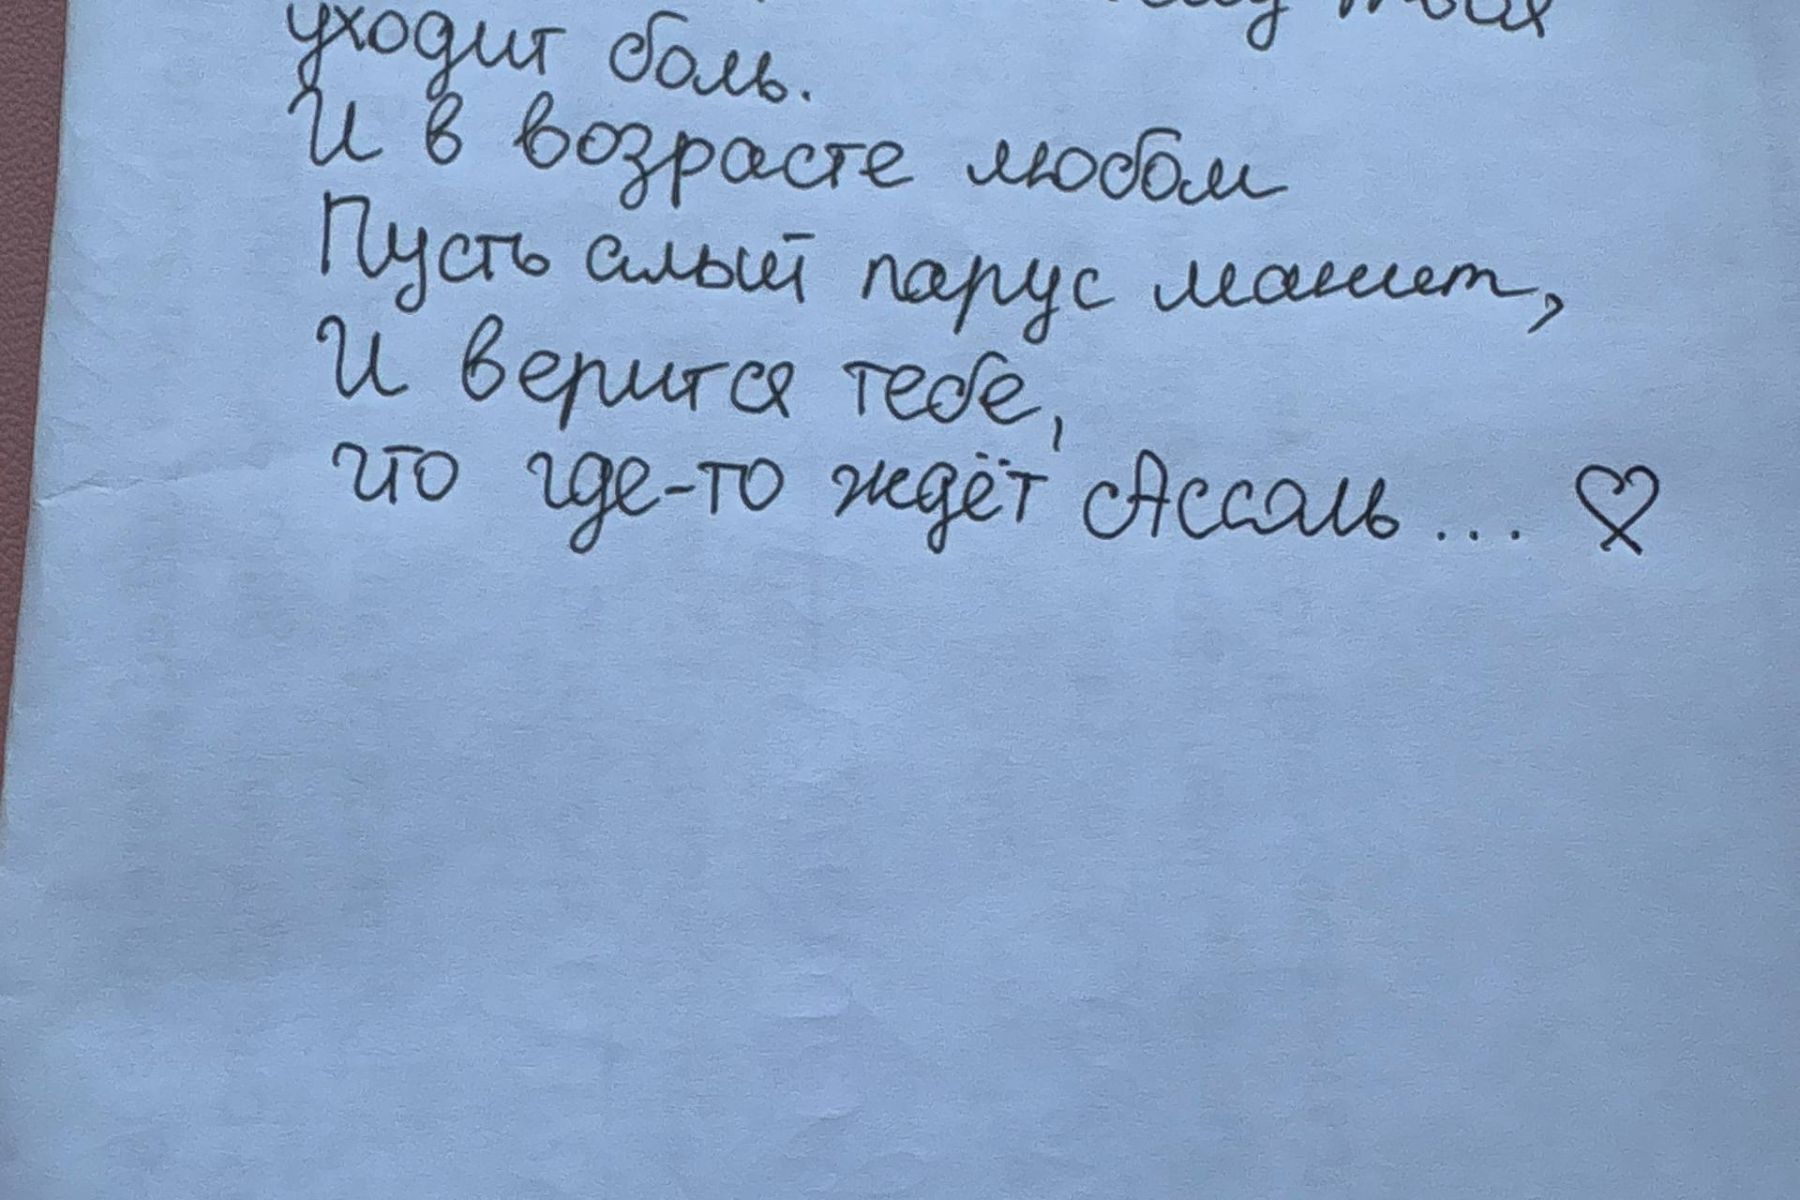 твоя
уходит боль.
И в возрасте любом
Пусть алый парус манит,
И верится тебе,
что где-то ждёт Ассоль... ♡